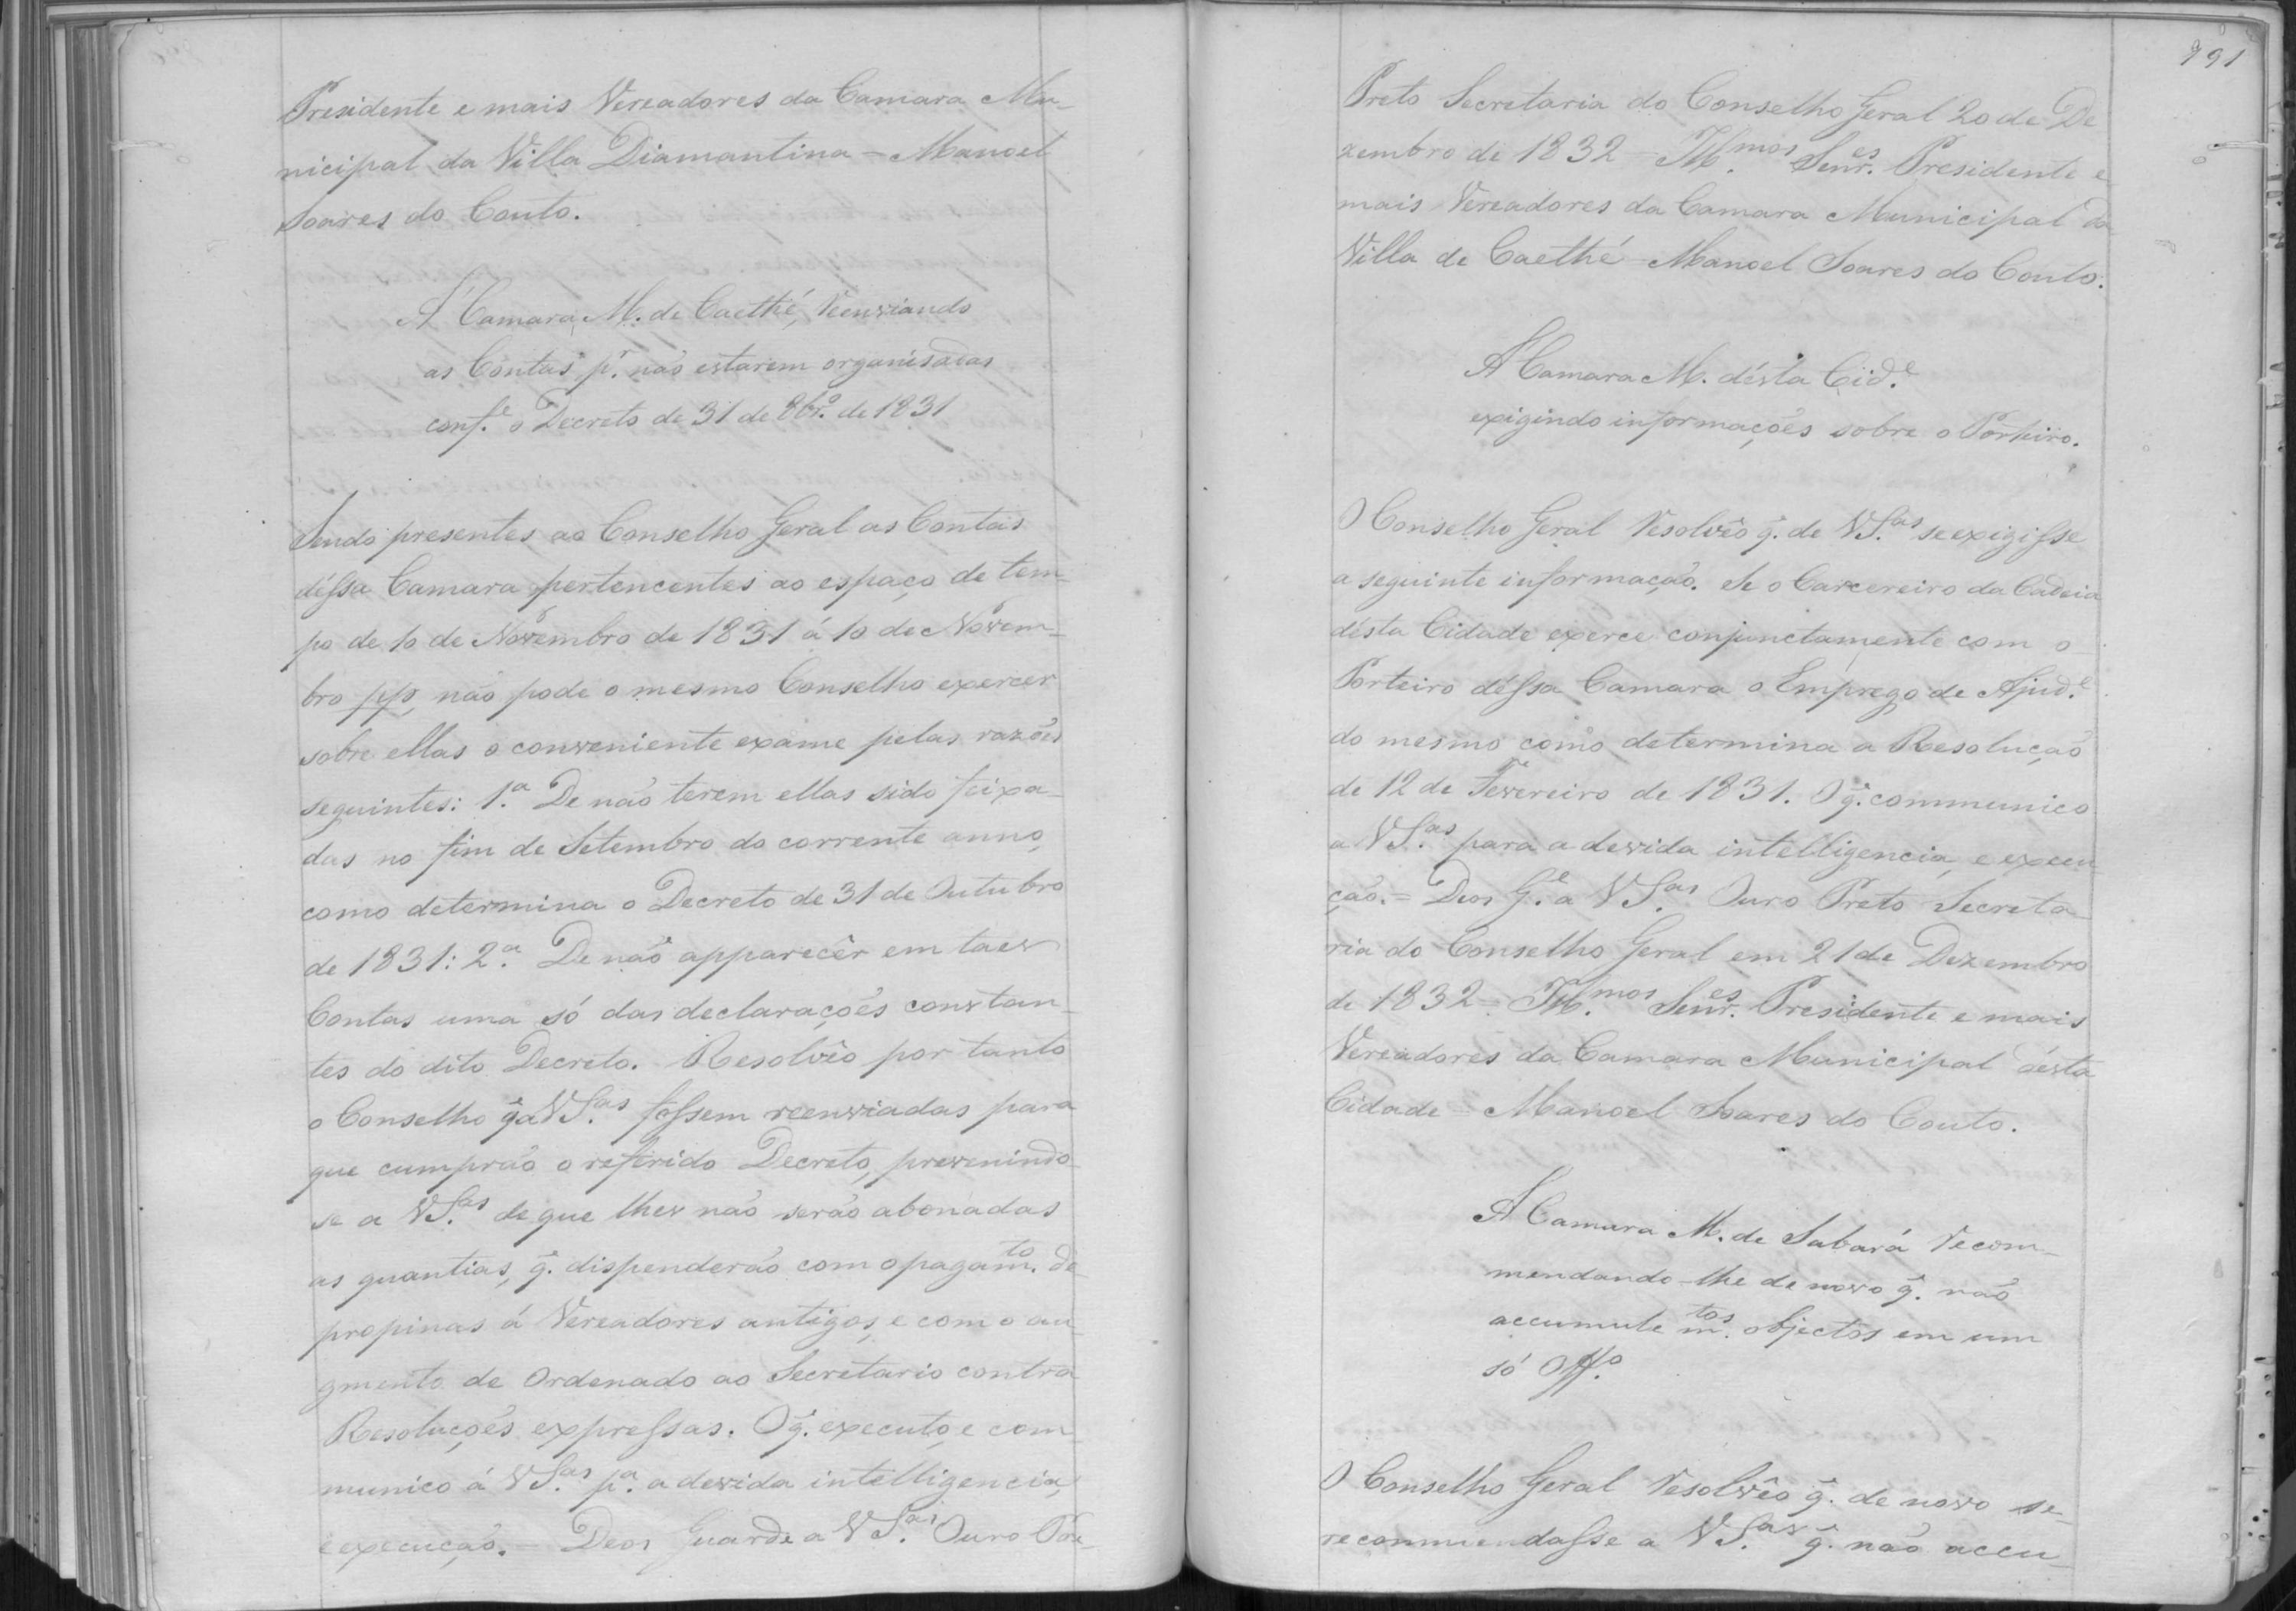 Presidente e mais Vereadores da Camara Mu-
nicipal da Villa Diamantina = Manoel
Soares do Couto.
A' Camara M. de Caethé, reenviando
as Contas pr. não estarem organisadas
conf.e o Decreto de 31 de 8br.o de 1831
Sendo presentes ao Conselho Geral as Contas
déssa Camara pertencentes ao espaço de tem-
po de 10 de Novembro de 1831 á 10 de Novem-
bro pp, não pode o mesmo Conselho exercer
sobre ellas o conveniente exame pelas razões
seguintes: 1.a De não terem ellas sido feixa-
das no fim de Setembro do corrente anno,
como determina o Decreto de 31 de Outubro
de 1831: 2.a De não apparecêr em taes
Contas uma só das declarações constan-
tes do dito Decreto. Resolvêo por tanto
o Conselho q̃ a VS.as fossem reenviadas para
que cumprão o referido Decreto, prevenindo-
se a VS.as de que lhes não serão abonadas
as quantias, q̃. dispenderão com o pagam.to de
propinas á Vereadores antigos, e com o au-
gmento de Ordenado ao Secretario contra
Resoluções expressas. O q̃. executo, e com-
munico á VS.as p.a a devida intelligencia,
e execução. = Deos Guarde a VS.as Ouro Pre-
991
Preto Secretaria do Conselho Geral 20 de De
zembro de 1832 = Ill.mos Senr.es Presidente e
mais Vereadores da Camara Municipal da
Villa de Caethé = Manoel Soares do Couto.
A' Camara M. désta Cid.e
exigindo informações sobre o Porteiro.
O Conselho Geral resolvêo q̃. de VS.as se exigisse
a seguinte informação. Se o Carcereiro da Cadeia
désta Cidade exerce conjunctamente com o
Porteiro déssa Camara o Emprego de Ajud.e
do mesmo como determina a Resolução
de 12 de Fevereiro de 1831. O q̃. communico
a VS.as para a devida intelligencia, e execu
ção. = Deos G.e a VS.as Ouro Preto Secreta-
ria do Conselho Geral em 21 de Dezembro
de 1832 = Ill.mos Senr.es Presidente e mais
Vereadores da Camara Municipal désta
Cidade = Manoel Soares do Couto.
A' Camara M. de Sabará recom-
mendando-lhe de novo q̃. não
accumule m.tos objectos em um
só Off.o
O Conselho Geral resolvêo q̃. de novo se
recommendasse a VS.as q̃. não accu-